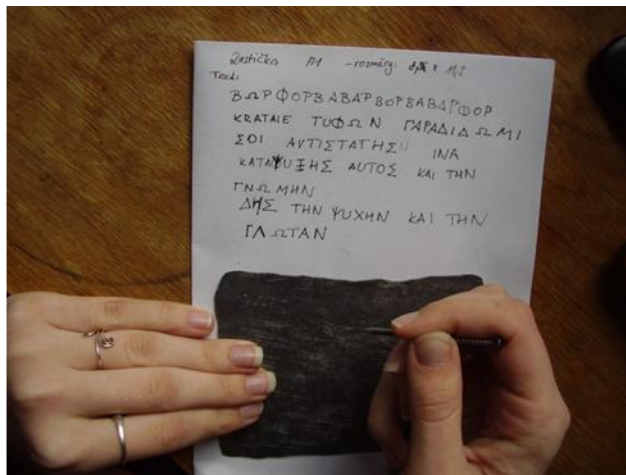 Destička M1 - rozměry: x 11,2
Text:
ΒΩΡΦΟΡΒΑΒΑΡΒΟΡΒΑΒΑΡΦΟΡ
KRATAIE TUΦΩN ΠΑΡΑΔΙΔΩΜΙ
ΣΟΙ ΑVΤΙΣΤΑΤΗΣ INA
ΚΑΤΑΨUΞΗΣ AUTOΣ ΚΑΙ ΤΗΝ
ΓΝΩΜΗΝ
ΔΗΣ ΤΗΝ ΨUΧΗΝ ΚΑΙ ΤΗΝ
ΓΛΩΤΑΝ